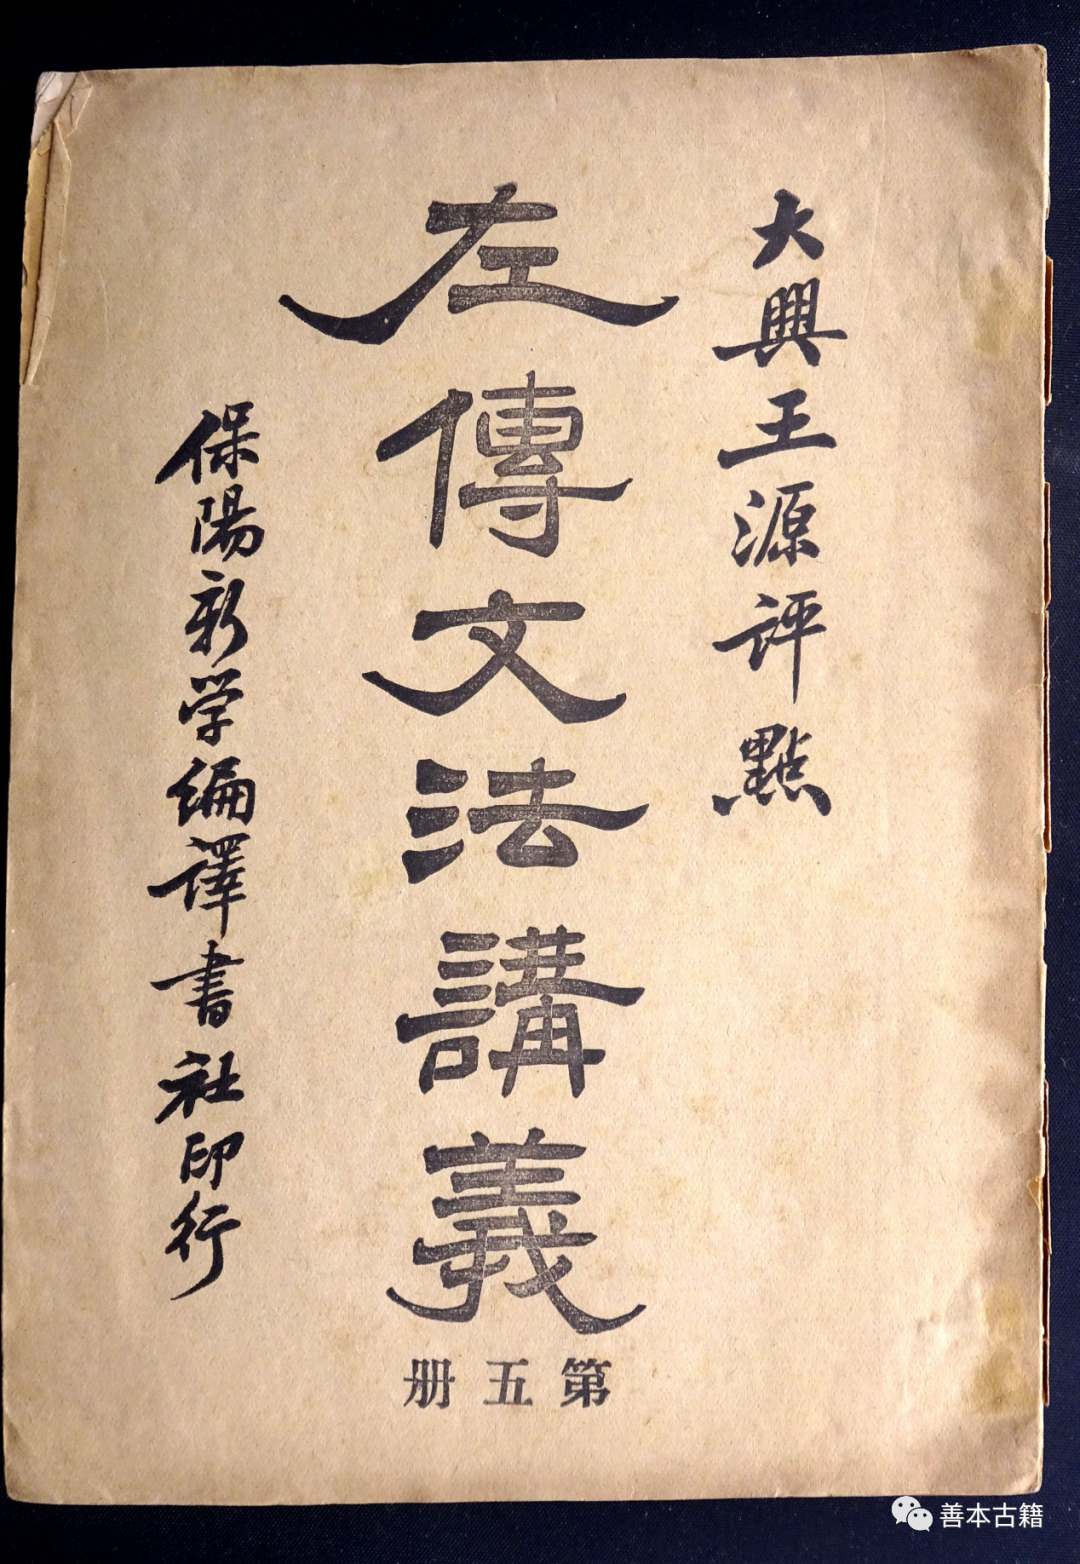 大興王源評點
左傳文法講義
第五册
保陽新学編譯書社印行
善本古籍